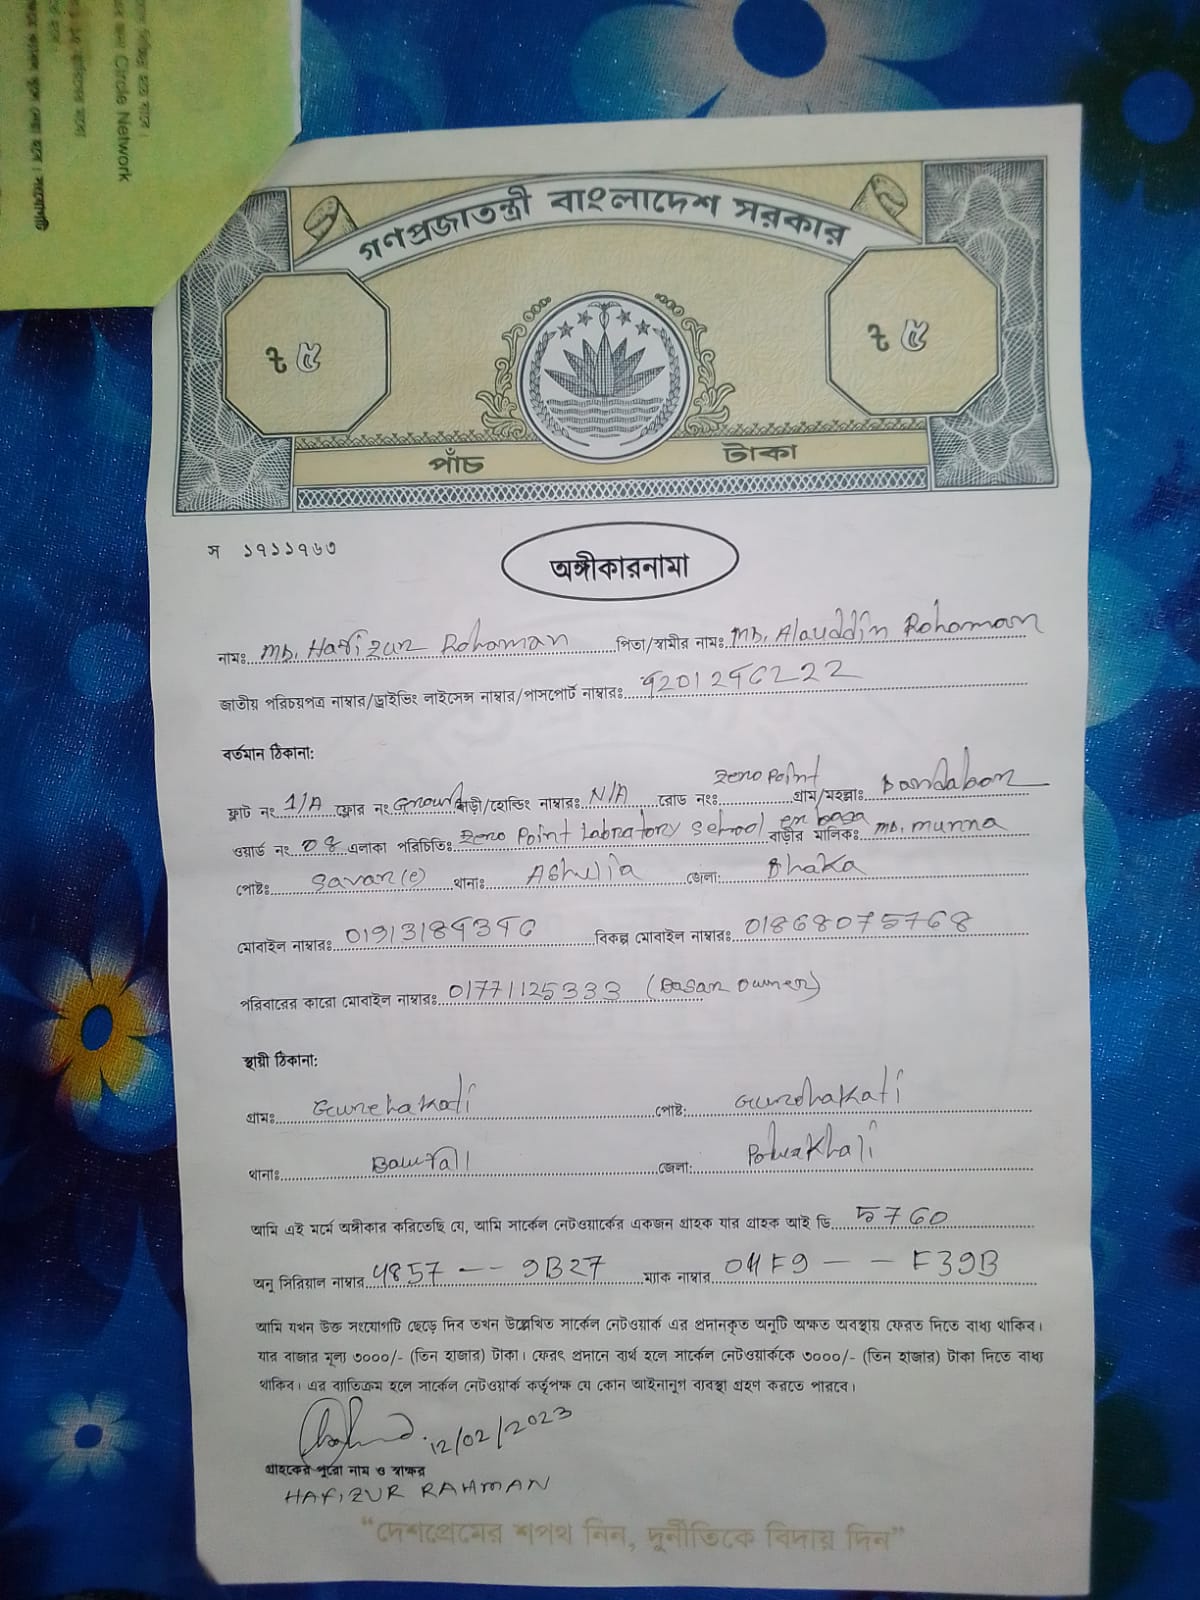 Circle Network
গণপ্রজাতন্ত্রী বাংলাদেশ সরকার
৳ ৫
৳ ৫
পাঁচ টাকা
স ১৭১১৭৬৩
অঙ্গীকারনামা
নামঃ Md. Hafizur Rohoman পিতা/স্বামীর নামঃ Md. Alauddin Rohoman
জাতীয় পরিচয়পত্র নাম্বার/ড্রাইভিং লাইসেন্স নাম্বার/পাসপোর্ট নাম্বারঃ
বর্তমান ঠিকানা:
ফ্লাট নং 1/A ফ্লোর নং Ground বাড়ী/হোল্ডিং নাম্বারঃ N/A রোড নংঃ Zero Point গ্রাম/মহল্লাঃ
ওয়ার্ড নং 08 এলাকা পরিচিতিঃ Zero Point Labratory School বাড়ীর মালিকঃ Md. Munna
পোষ্টঃ থানাঃ Ashulia জেলা: Dhaka
মোবাইল নাম্বারঃ বিকল্প মোবাইল নাম্বারঃ 01868075768
পরিবারের কারো মোবাইল নাম্বারঃ 01771125333
স্থায়ী ঠিকানা:
গ্রামঃ পোষ্ট:
থানাঃ জেলা:
আমি এই মর্মে অঙ্গীকার করিতেছি যে, আমি সার্কেল নেটওয়ার্কের একজন গ্রাহক যার গ্রাহক আই ডি 5760
অনু সিরিয়াল নাম্বার 4857 -- 9B27 ম্যাক নাম্বার 04F9 -- F39B
আমি যখন উক্ত সংযোগটি ছেড়ে দিব তখন উল্লেখিত সার্কেল নেটওয়ার্ক এর প্রদানকৃত অনুটি অক্ষত অবস্থায় ফেরত দিতে বাধ্য থাকিব।
যার বাজার মূল্য ৩০০০/- (তিন হাজার) টাকা। ফেরৎ প্রদানে ব্যর্থ হলে সার্কেল নেটওয়ার্ককে ৩০০০/- (তিন হাজার) টাকা দিতে বাধ্য
থাকিব। এর ব্যতিক্রম হলে সার্কেল নেটওয়ার্ক কর্তৃপক্ষ যে কোন আইনানুগ ব্যবস্থা গ্রহণ করতে পারবে।
12/02/2023
গ্রাহকের পুরো নাম ও স্বাক্ষর
HAFIZUR RAHMAN
“দেশপ্রেমের শপথ নিন, দুর্নীতিকে বিদায় দিন”